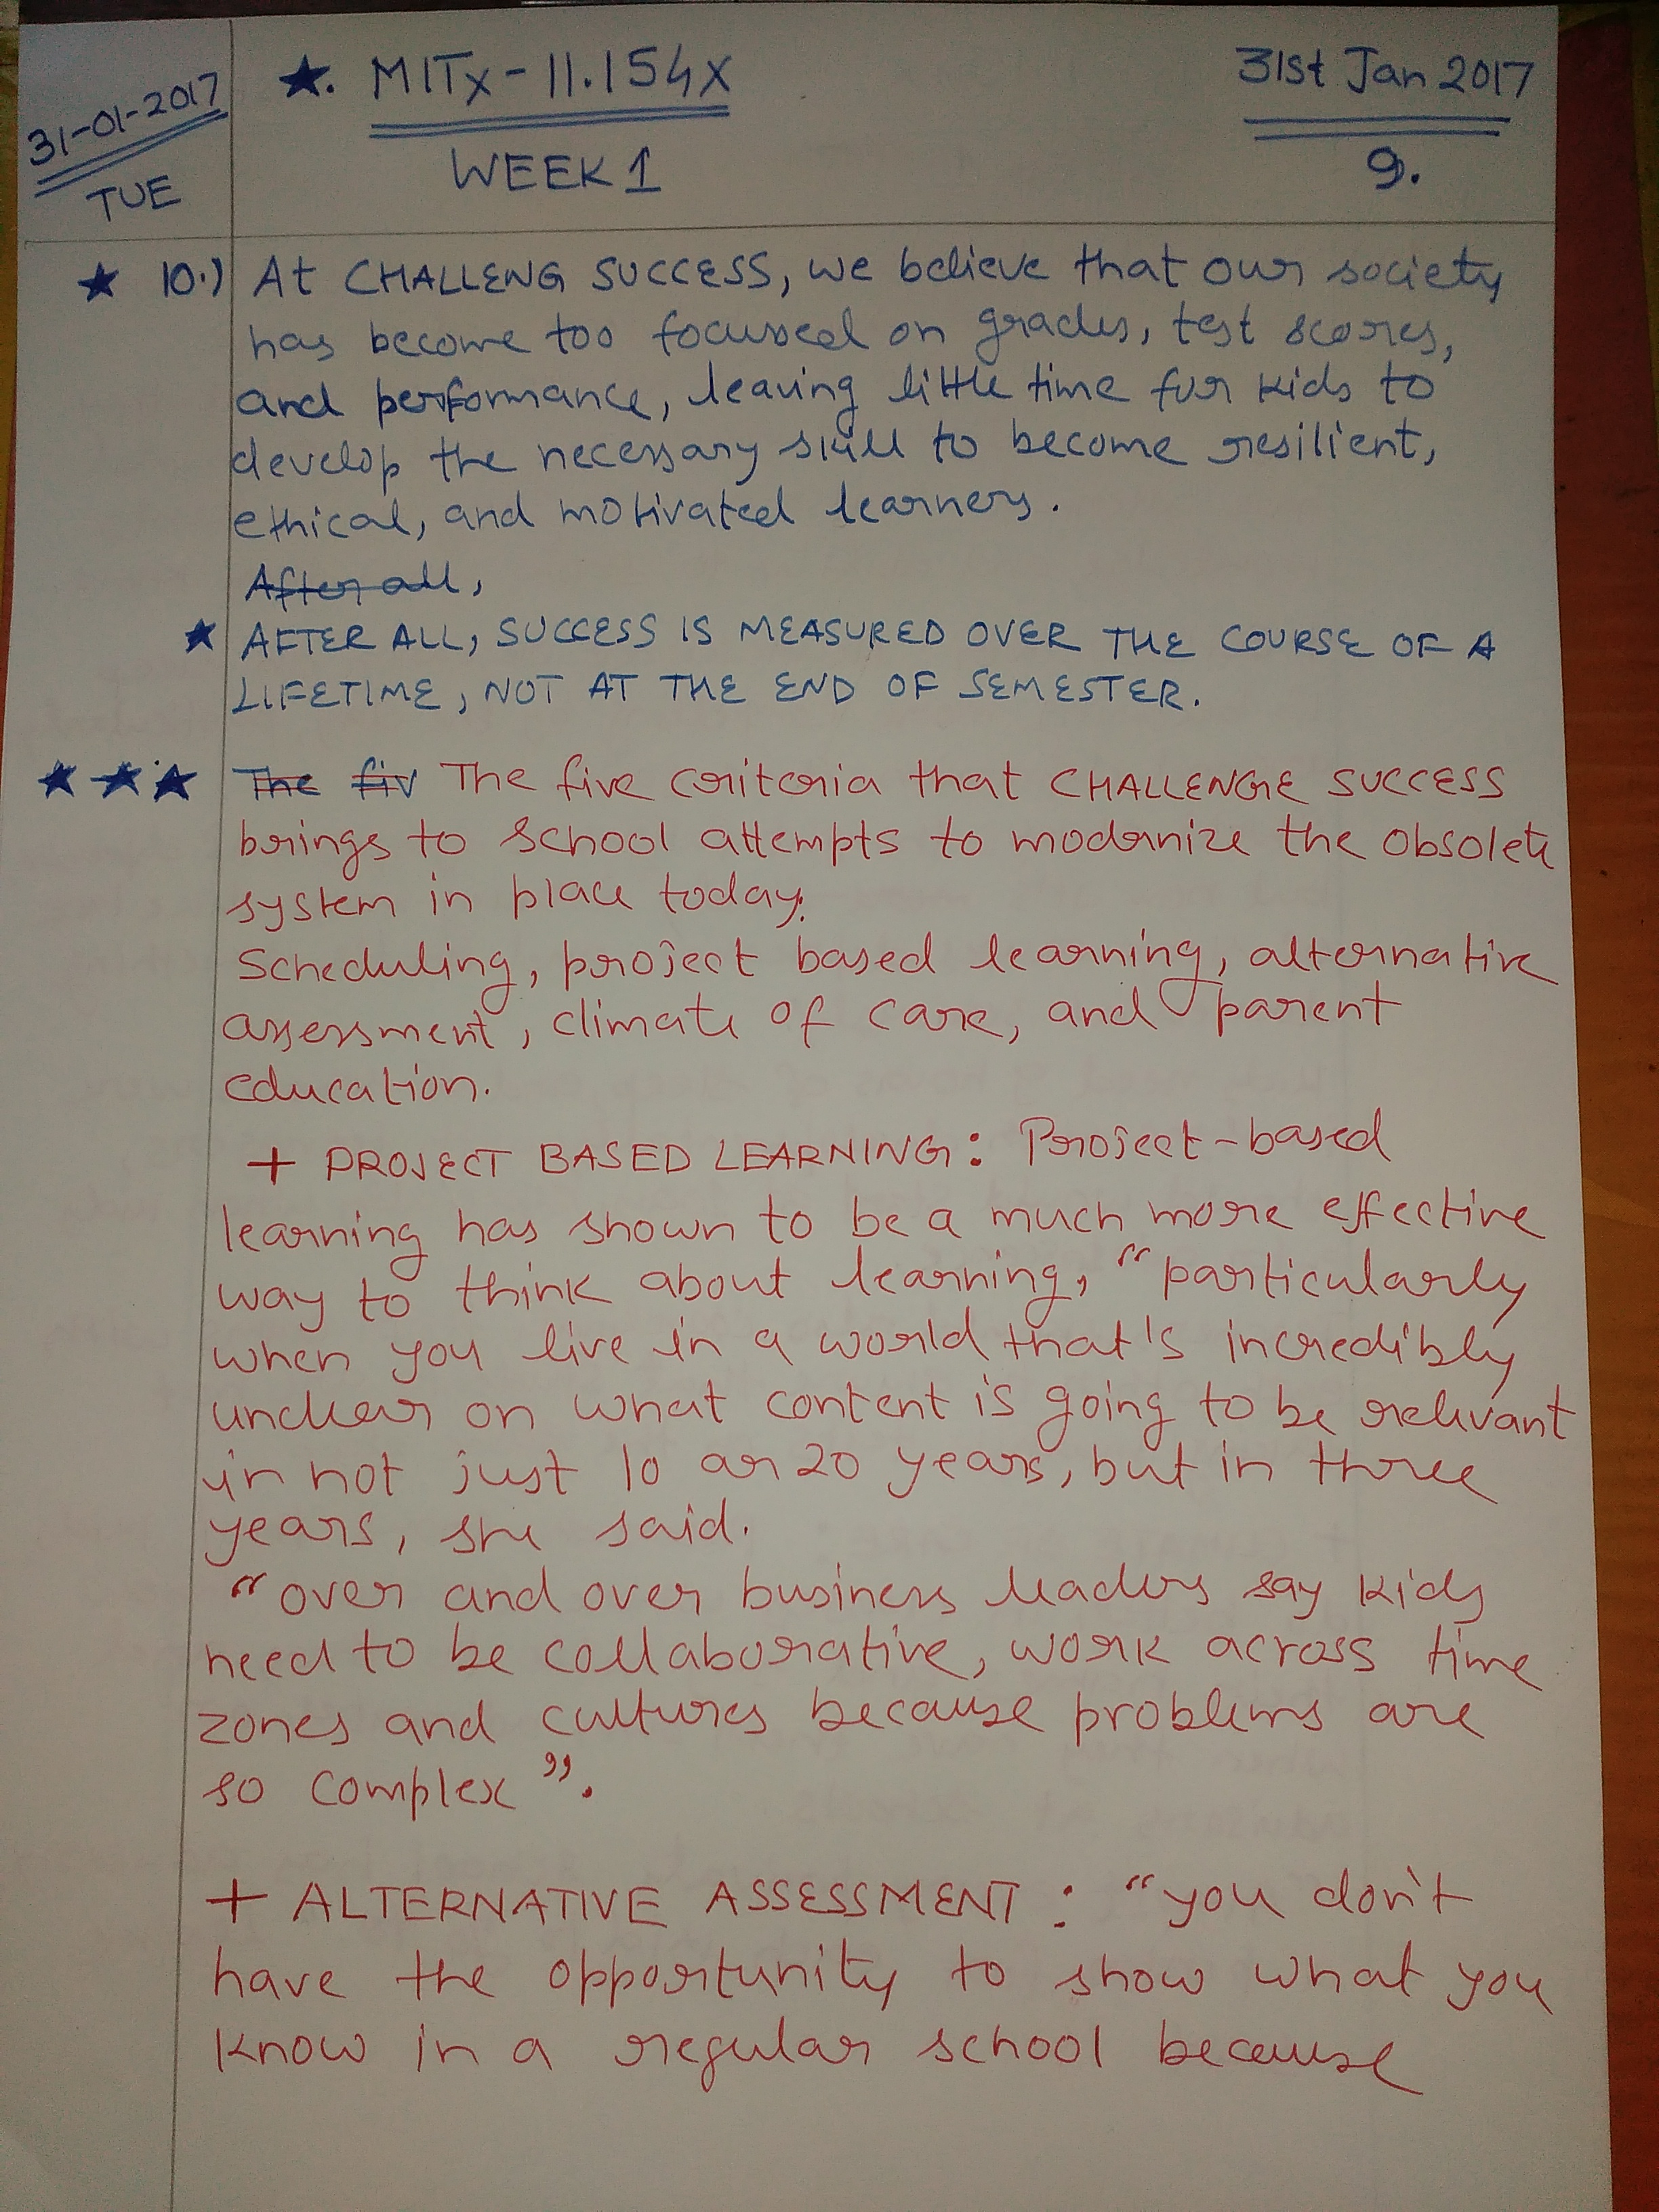 31-01-2017
TUE
★. MITx-11.154x
WEEK 1
31st Jan 2017
9.
★ 10.) At CHALLENG SUCCESS, we believe that our society
has become too focused on grades, test scores,
and performance, leaving little time for kids to
develop the necessary skill to become resilient,
ethical, and motivated learners.
After all,
★ AFTER ALL, SUCCESS IS MEASURED OVER THE COURSE OF A
LIFETIME, NOT AT THE END OF SEMESTER.
★★★ The fiv The five criteria that CHALLENGE SUCCESS
brings to school attempts to modernize the obsolete
system in place today.
Scheduling, project based learning, alternative
assessment, climate of care, and parent
education.
+ PROJECT BASED LEARNING: Project-based
learning has shown to be a much more effective
way to think about learning, "particularly
when you live in a world that's incredibly
unclear on what content is going to be relevant
in not just 10 or 20 years, but in three
years, she said.
"over and over business leaders say kids
need to be collaborative, work across time
zones and cultures because problems are
so complex".
+ ALTERNATIVE ASSESSMENT: "you don't
have the opportunity to show what you
know in a regular school because